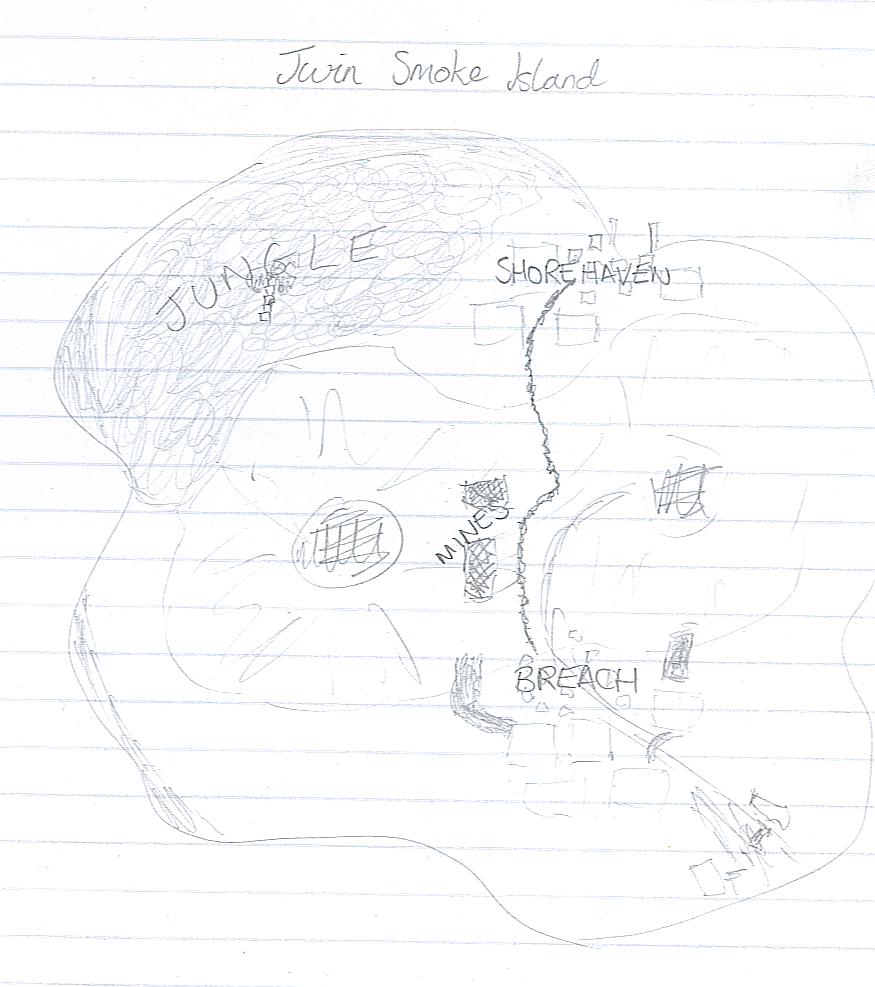 Twin Smoke Island
JUNGLE
SHOREHAVEN
MINES
BREACH